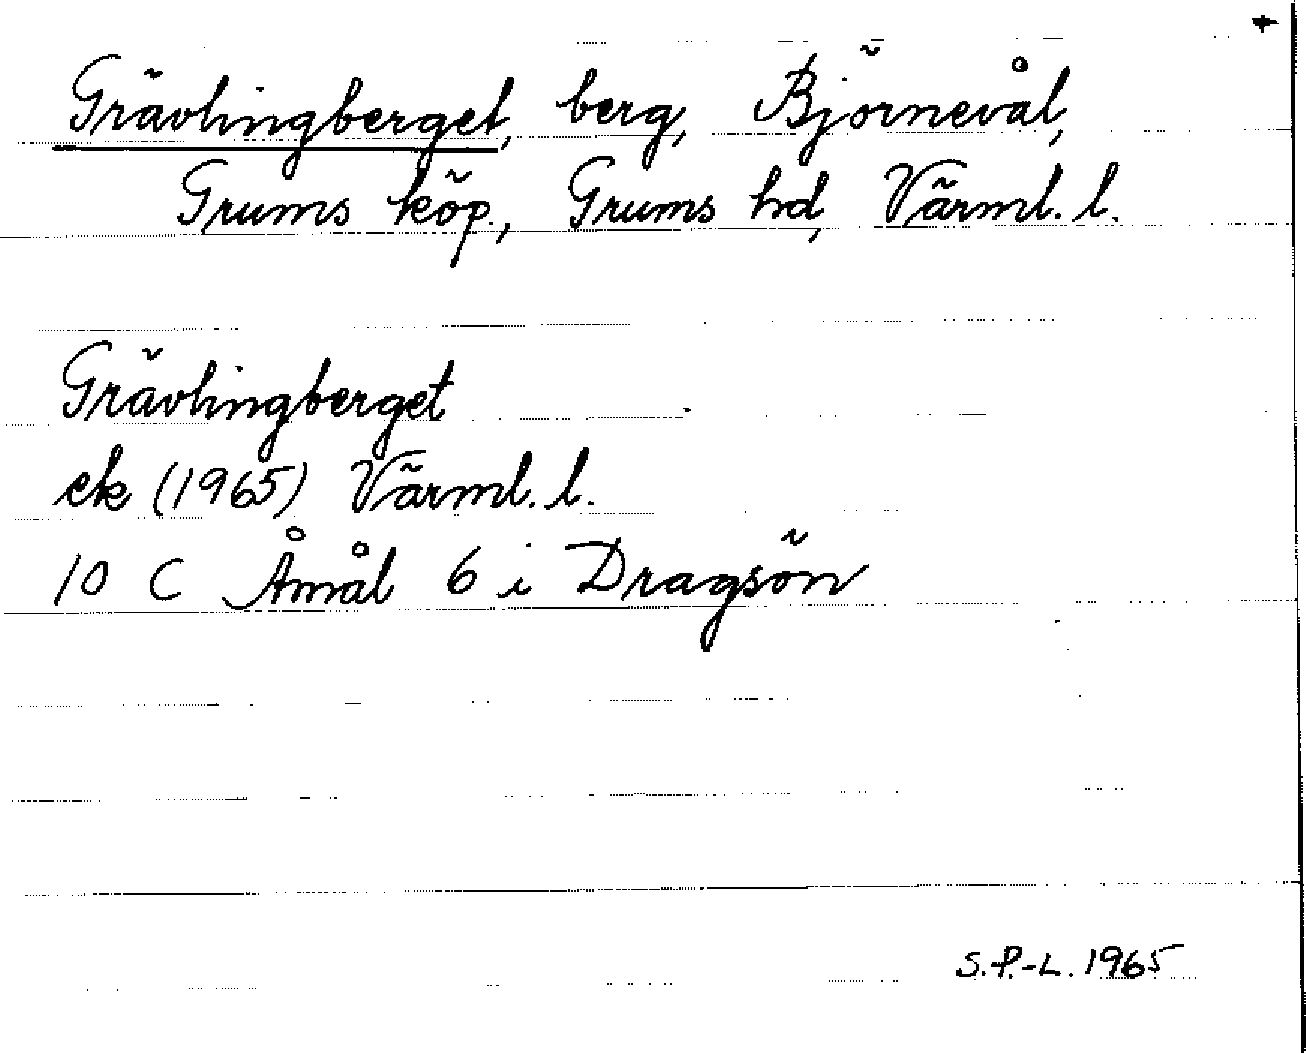 Grävlingberget, berg, Björnevål,
Grums köp., Grums hd, Värml. l.
Grävlingberget
ek (1965) Värml. l.
10 C Åmål 6 i Dragsön
S.P.-L. 1965